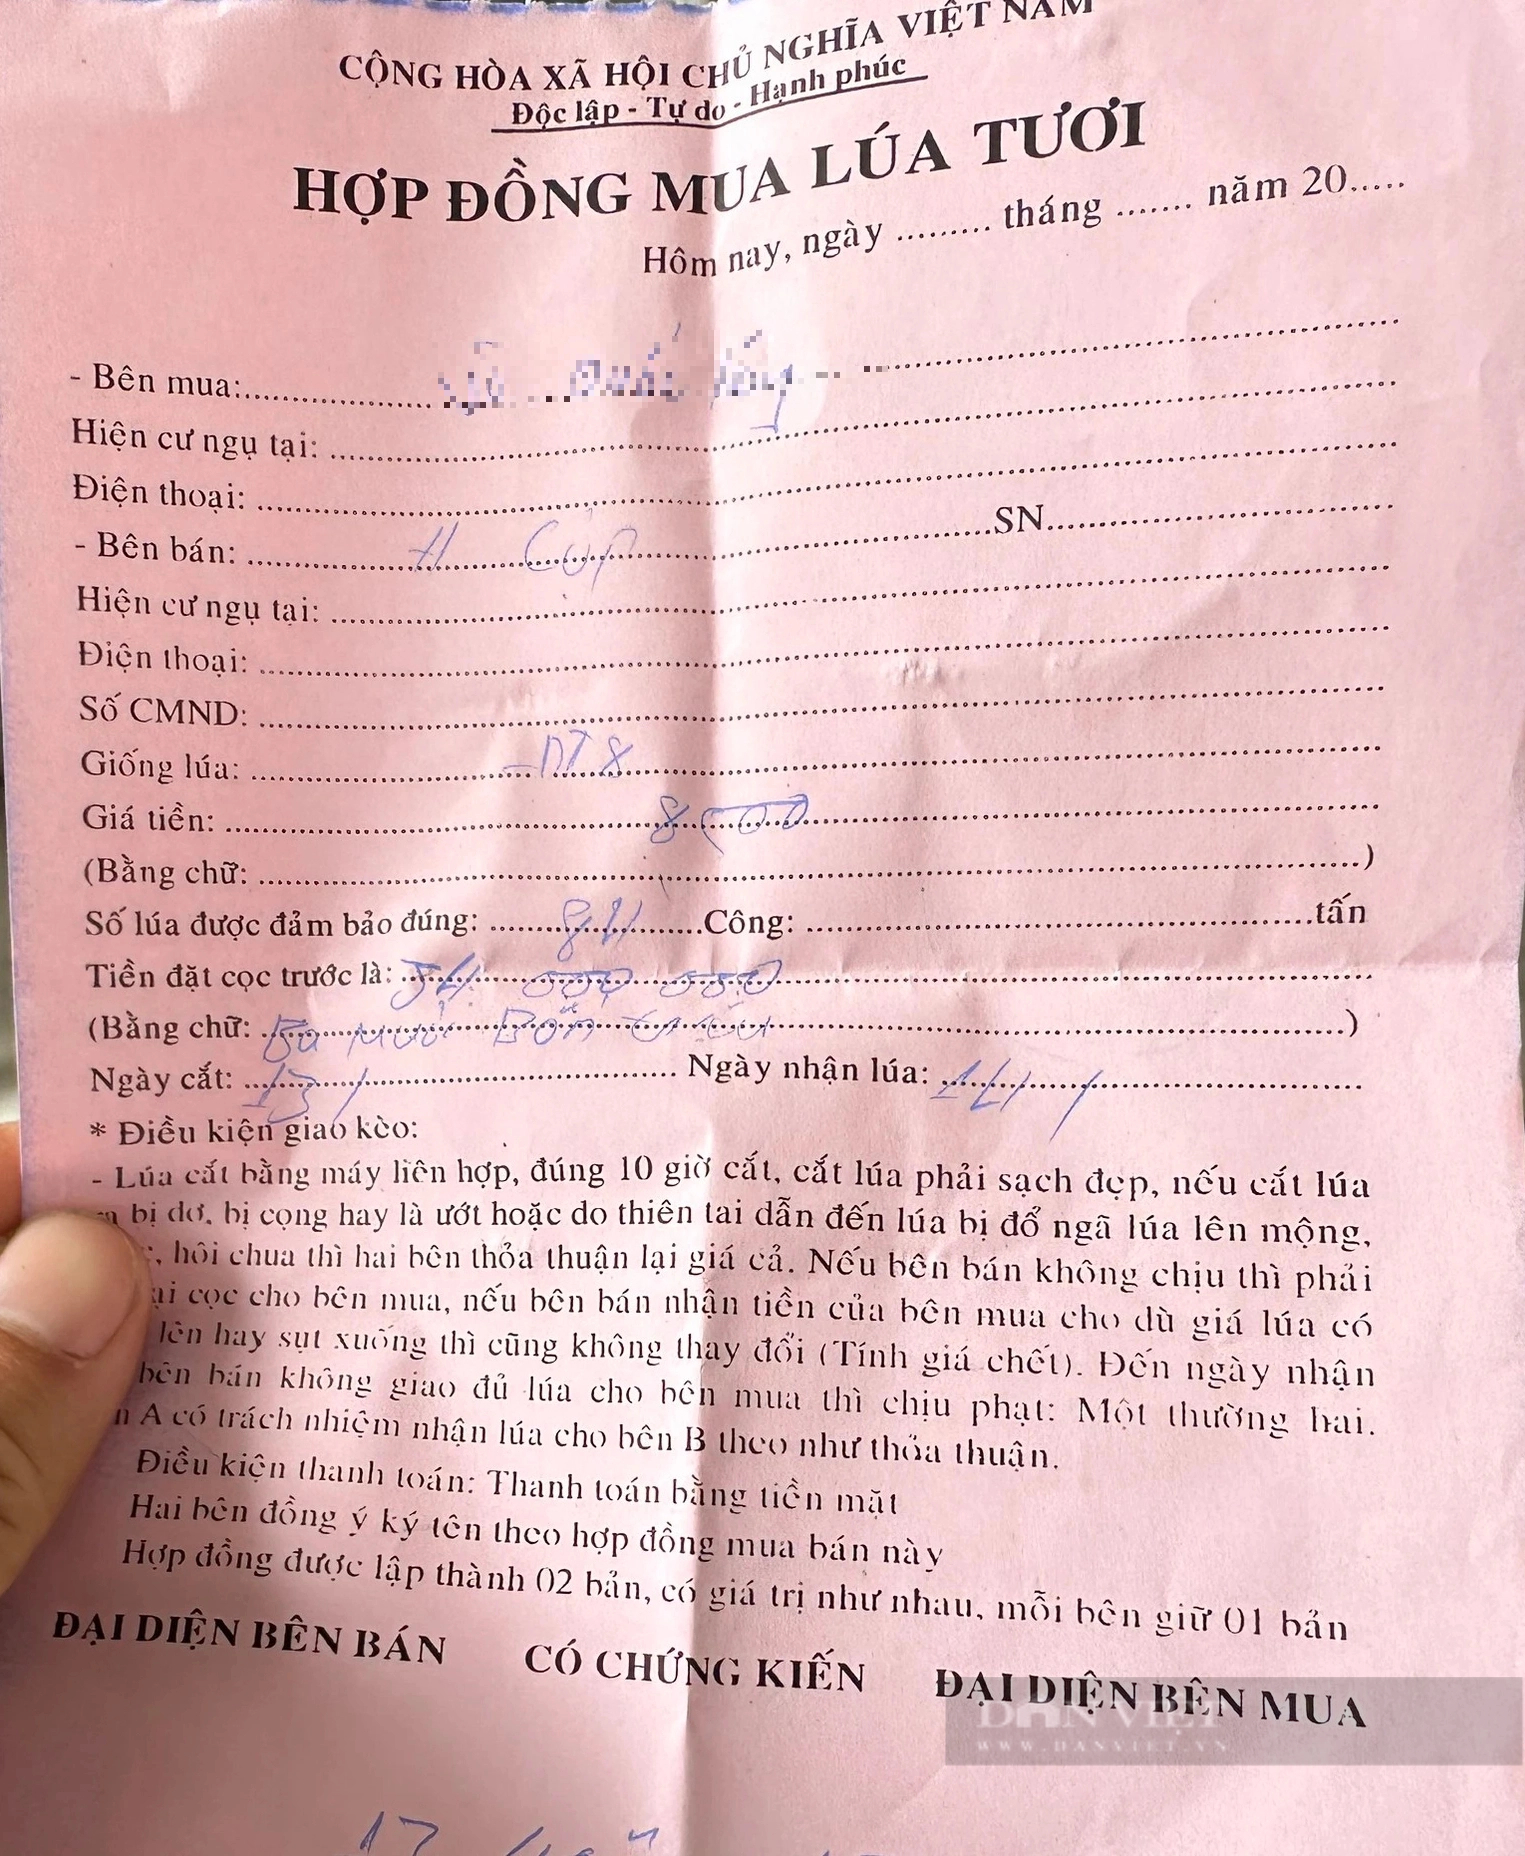 CỘNG HÒA XÃ HỘI CHỦ NGHĨA VIỆT NAM
Độc lập - Tự do - Hạnh phúc
HỢP ĐỒNG MUA LÚA TƯƠI
Hôm nay, ngày ......... tháng ....... năm 20.....
- Bên mua:
Hiện cư ngụ tại:
Điện thoại:
- Bên bán: H Cúp SN
Hiện cư ngụ tại:
Điện thoại:
Số CMND:
Giống lúa: DT8
Giá tiền:
(Bằng chữ: )
Số lúa được đảm bảo đúng: 84 Công: tấn
Tiền đặt cọc trước là: 34 000 000
(Bằng chữ: Ba mươi Bốn triệu )
Ngày cắt: 13/ Ngày nhận lúa: 14/
* Điều kiện giao kèo:
- Lúa cắt bằng máy liên hợp, đúng 10 giờ cắt, cắt lúa phải sạch đẹp, nếu cắt lúa
bị dơ, bị cọng hay là ướt hoặc do thiên tai dẫn đến lúa bị đổ ngã lúa lên mộng,
, hôi chua thì hai bên thỏa thuận lại giá cả. Nếu bên bán không chịu thì phải
cọc cho bên mua, nếu bên bán nhận tiền của bên mua cho dù giá lúa có
lên hay sụt xuống thì cũng không thay đổi (Tính giá chết). Đến ngày nhận
bên bán không giao đủ lúa cho bên mua thì chịu phạt: Một thường hai.
A có trách nhiệm nhận lúa cho bên B theo như thỏa thuận.
Điều kiện thanh toán: Thanh toán bằng tiền mặt
Hai bên đồng ý ký tên theo hợp đồng mua bán này
Hợp đồng được lập thành 02 bản, có giá trị như nhau, mỗi bên giữ 01 bản
ĐẠI DIỆN BÊN BÁN CÓ CHỨNG KIẾN ĐẠI DIỆN BÊN MUA
DÂN VIỆT
WWW.DANVIET.VN